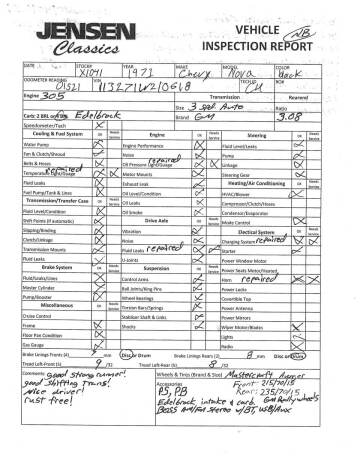 JENSEN
Classics
VEHICLE
INSPECTION REPORT
DATE STOCK# YEAR MAKE MODEL COLOR
X1041 1971 Chevy Nova black
ODOMETER READING VIN TECH I.D. RO#
01521
Engine 305 Transmission Rearend
Size 3 spd Auto Ratio
Carb: 2 BRL or 4 BRL Edelbrock Brand GM 3.08
Speedometer/Tach
Cooling & Fuel System OK Needs Service Engine OK Needs Service Steering OK Needs Service
Water Pump Engine Performance Fluid Level/Leaks
Fan & Clutch/Shroud Noise Pump
Belts & Hoses Oil Pressure Light/Guage repaired Linkage
Temperature Light/Guage repaired Motor Mounts Steering Gear
Fluid Leaks Exhaust Leak Heating/Air Conditioning OK Needs Service
Fuel Pump/Tank & Lines Oil Level/Condition HVAC/Blower
Transmission/Transfer Case OK Needs Service Oil Leaks Compressor/Clutch/Hoses
Fluid Level/Condition Oil Smoke Condensor/Evaporator
Shift Points (if automatic) Drive Axle OK Needs Service Intake Control
Slipping/Binding Vibration Electical System OK Needs Service
Clutch/Linkage Noise Charging System repaired
Transmission Mounts Fluid Leaks repaired Starter
Fluid Leaks U-Joints Power Window Motor
Brake System OK Needs Service Suspension OK Needs Service Power Seats Motor/Heated
Fluid/Leaks/Lines Control Arms Horn repaired
Master Cylinder Ball Joints/King Pins Power Locks
Pump/Booster Wheel Bearings Covertible Top
Miscellaneous OK Needs Service Torsion Bars/Springs Power Antenna
Cruise Control Stabilizer Shaft & Links Power Mirrors
Frame Shocks Wiper Motor/Blades
Floor Pan Condition Lights
Gas Gauge Radio
Brake Linings Fronts (4) 9 mm Disc or Drum Brake Linings Rears (2) 8 mm Disc or Drum
Tread Left-Front (S) 9 /32 Tread Left-Rear (S) 8 /32
Comments: good strong runner!
good shifting trans!
nice driver!
rust free!
Wheels & Tires (Brand & Size) Mastercraft Avenger
Front: 215/70/15
Rear: 235/70/15
Accessories
PS, PB GM Rallywheels
Edelbrock intake & carb
BOSS AM/FM Stereo w/BT, USB/Aux